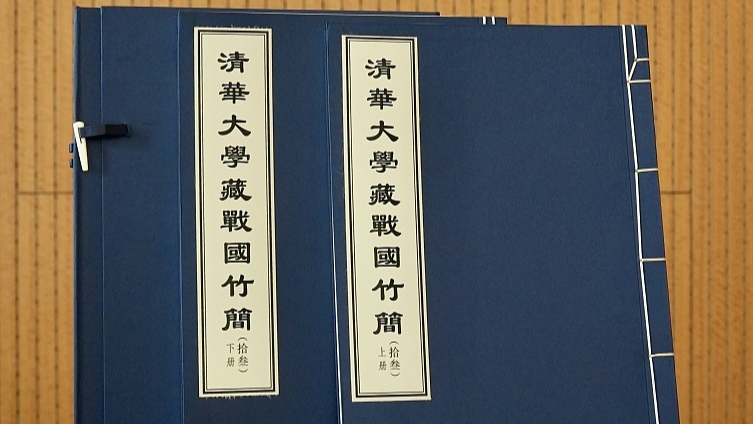 清華大學藏戰國竹簡
（拾叁）
上册
清華大學藏戰國竹簡
（拾叁）
下册